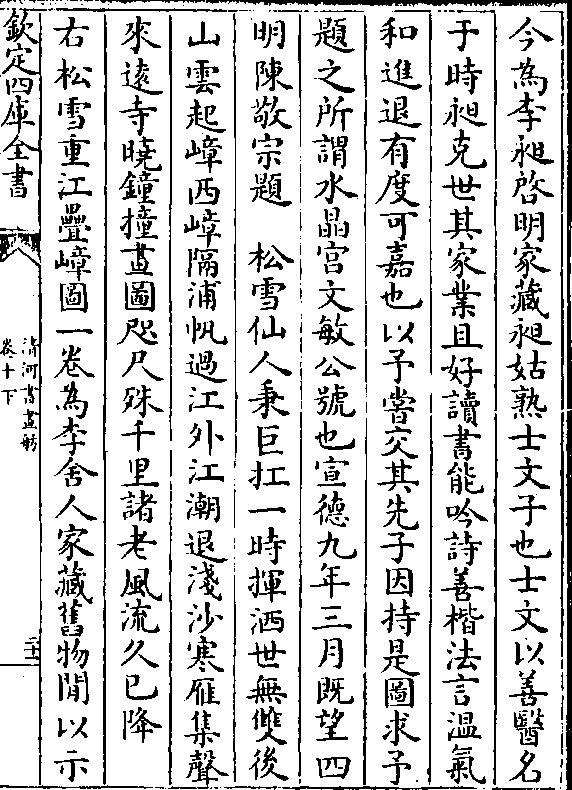 今為李昶啓明家藏昶姑熟士文子也士文以善醫名
于時昶克世其家業且好讀書能吟詩善楷法言溫氣
和進退有度可嘉也以予嘗交其先子因持是圖求予
題之所謂水晶宫文敏公號也宣德九年三月既望四
明陳敬宗題　松雪仙人秉巨扛一時揮洒世無雙後
山雲起嶂西嶂隔浦帆過江外江潮退淺沙寒雁集聲
來逺寺曉鐘撞畫圖咫尺殊千里諸老風流久已降
右松雪重江疊嶂圖一卷為李舍人家藏舊物閒以示
欽定四庫全書
清河書畫舫
卷十下